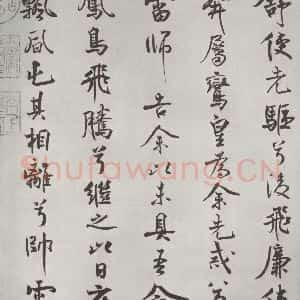 舒使先驅兮後飛廉使
奔屬鸞皇為余先戒兮
雷師告余以未具吾令
鳳鳥飛騰兮繼之以日夜
飄風屯其相離兮帥雲
Shufawang.CN